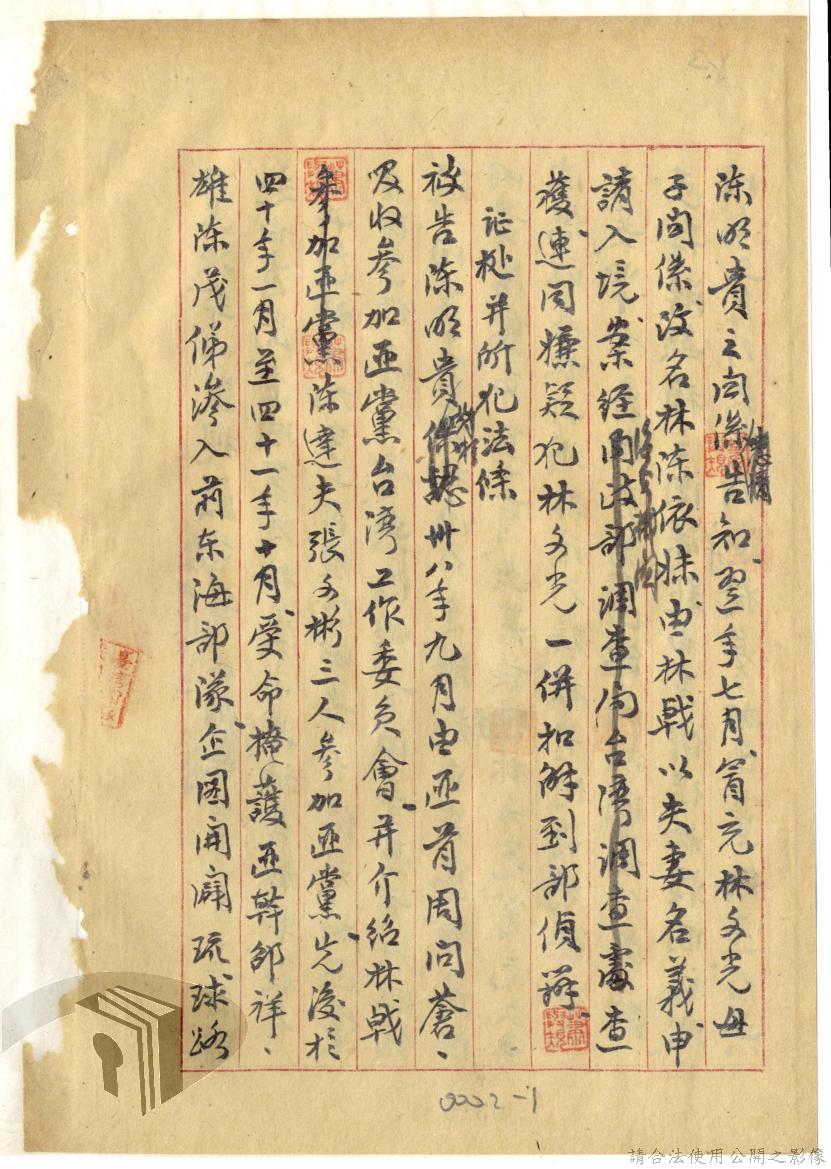 陈明貴之関係告知、翌年七月、冒充林文光母
子関係改名林陈依妹、由林戟以夫妻名義申
請入境、案经調查局台湾調查處查
獲、連同嫌疑犯林文光一併扣解到部偵辦、
证據并所犯法條
被告陈明貴供認卅八年九月由匪首周问蒼、
吸收參加匪黨台湾工作委員會、并介绍林戟
參加匪黨陈達夫張文彬三人參加匪黨、先後於
四十年一月至四十一年十月、受命掩護匪幹邹祥、
雄陈茂俤滲入前东海部隊、企图開闢琉球路
0002-1
請合法使用公開之影像